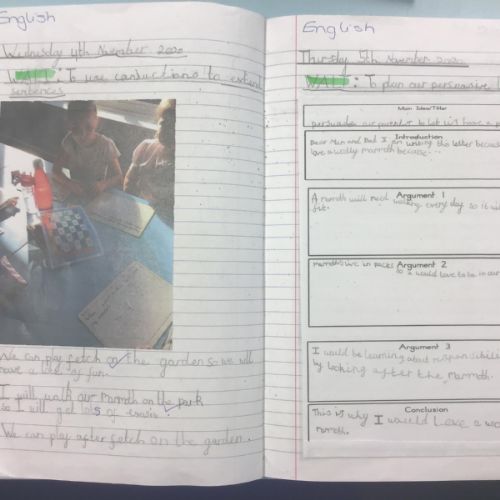 English
Wednesday 4th November 2020
WALT: To use conjuctions to extend
sentences
We can play fetch on the garden so we will
have a lots of fun.
I will walk our mamoth on the park
so I will get lots of
We can play after fetch on the garden.
English
Thursday 5th November 2020
WALT: To plan our persuasive
Main Idea/Title
persuade our parents to let us have a
Introduction
Dear Mum and Dad I am writing this letter because
love a woolly mamoth because...
Argument 1
A mamoth will need walking every day so it
fit.
Argument 2
mamoths live in packs so it would love to be in our
Argument 3
I would be learning about responsibili
by looking after the mamoth.
Conclusion
This is why I would love a wo
mamoth.